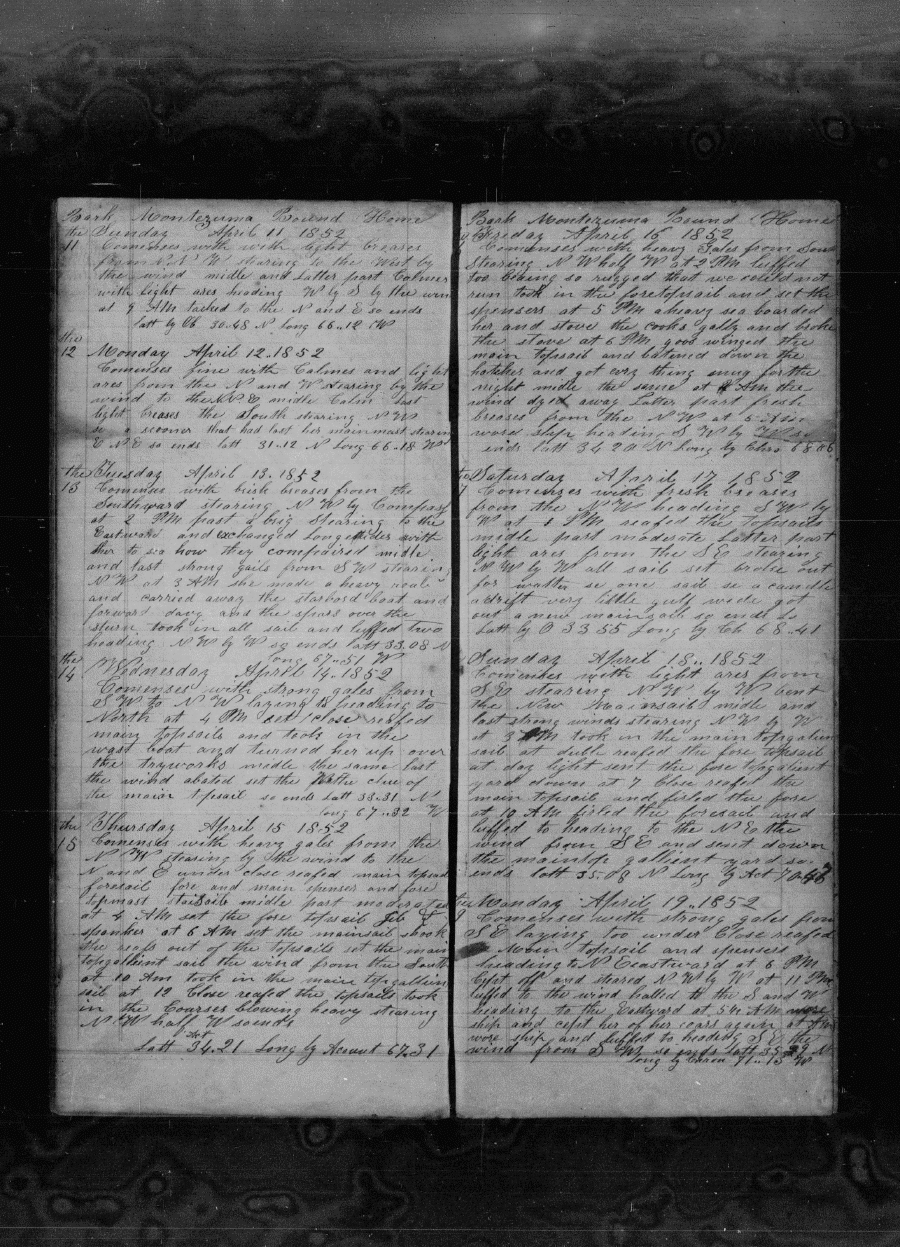 Bark Montezuma Bound Home
the Sunday April 11 1852
11 Comences with with light breases
from N N W stearing to the West by
the wind midle and Latter part Calmes
with light ares heading W by S by the win
at 9 AM tacked to the N and E so ends
latt by Ob 30.48 N long 66.12 W
the
12 Monday April 12.1852
Comenses fine with Calmes and light
ares from the N and W stearing by the
wind to the N N E midle Calm last
light breases the South stearing N W
se a scooner that had lost her mainmast stearin
E N E so ends latt 31.12 N Long 66.18 W
the Tuesday April 13.1852
13 Comenses with brisk breases from the
Southward stearing N W by Compass
at 2 PM past a brig Stearing to the
Eastward and exchanged Longitudes with
her to se how they compaired midle
and last strong gails from S W stearing
N W at 3 AM she made a heavy roale
and carried away the starbord boat and
forward davy and the spars over the
stern took in all sail and luffed two
heading N W by W so ends latt 33.08 N
long 67..51 W
the
14 Wednesday April 14.1852
Comenses with strong gales from
S W to N W laying to heading to
North at 4 PM set close reafed
main topsails and took in the
wast boat and turned her up over
the tryworks midle the same last
the wind abated set the the clue of
the maior topsail so ends Latt 33.31 N
long 67..32 W
the Thursday April 15 1852
15 Comenses with heavy gales from the
N W stearing by the wind to the
N and E under close reafed main topsail
foresail fore and main spenser and fore
topmast staisails midle part moderates
at 4 AM set the fore topsail Jib &
spanker at 6 AM set the mainsail shook
the reafs out of the topsails set the main
topgallient sail the wind from the South
at 10 Am took in the main topgallien
sail at 12 Close reafed the topsails took
in the Courses blowing heavy stearing
N W half W so ends
Latt Act 34.21 Long by Acount 67.31
Bark Montezuma Bound Home
Friday April 16 1852
Comenses with heavy Gales from Sou
stearing N W half W at 2 PM luffed
too being so rugged that we could not
run took in the foretopsail and set the
spensers at 5 PM a heavy sea boarded
her and stove the cooks gally and broke
the stove at 6 PM goos winged the
main topsail and batined down the
hatches and got evry thing snug for the
night midle the same at 4 AM the
wind dyed away Latter part fresh
breases from the N W at 5 Am
wore ship heading S W by
ends latt 34 20 N Long by Chro 68.06
Saturday April 17 1852
Comenses with fresh breases
from the N W heading S W by
W at 1 PM reafed the topsails
midle part moderate Latter part
light ares from the S E stearing
N W by W all sail set broke out
for watter se one sail se a candle
adrift very little gulf weede got
out a new mainsail so ends
Latt by O 33 55 Long by Ch 68..41
Sunday April 18..1852
Comenses with light ares from
S E stearing N W by W bent
the New Mainsail midle and
last strong winds stearing N W by W
at 3 AM took in the main topgallien
sail at dubl reafed the fore topsail
at day light sent the fore topgalient
yard down at 7 Close reafed the
main topsail and firled the fore
at 10 AM firled the foresail and
luffed to heading to the N E the
wind from S E and sent down
the maintop gallient yard so
ends latt 35.08 N Long by Act 70.46
Monday April 19..1852
Comenses with strong gales from
S E laying too under Close reafed
Main topsail and spenses
heading to N Eeastward at 6 PM
Cept off and steared N W by W at 11 PM
luffed to the wind halled to the S and W
heading to the Eastyard at 5 AM wore
ship and cept her of her coars again at
wore ship and luffed to heading S E the
wind from S W so ends latt 35 29 N
long by Chron 71..15 W